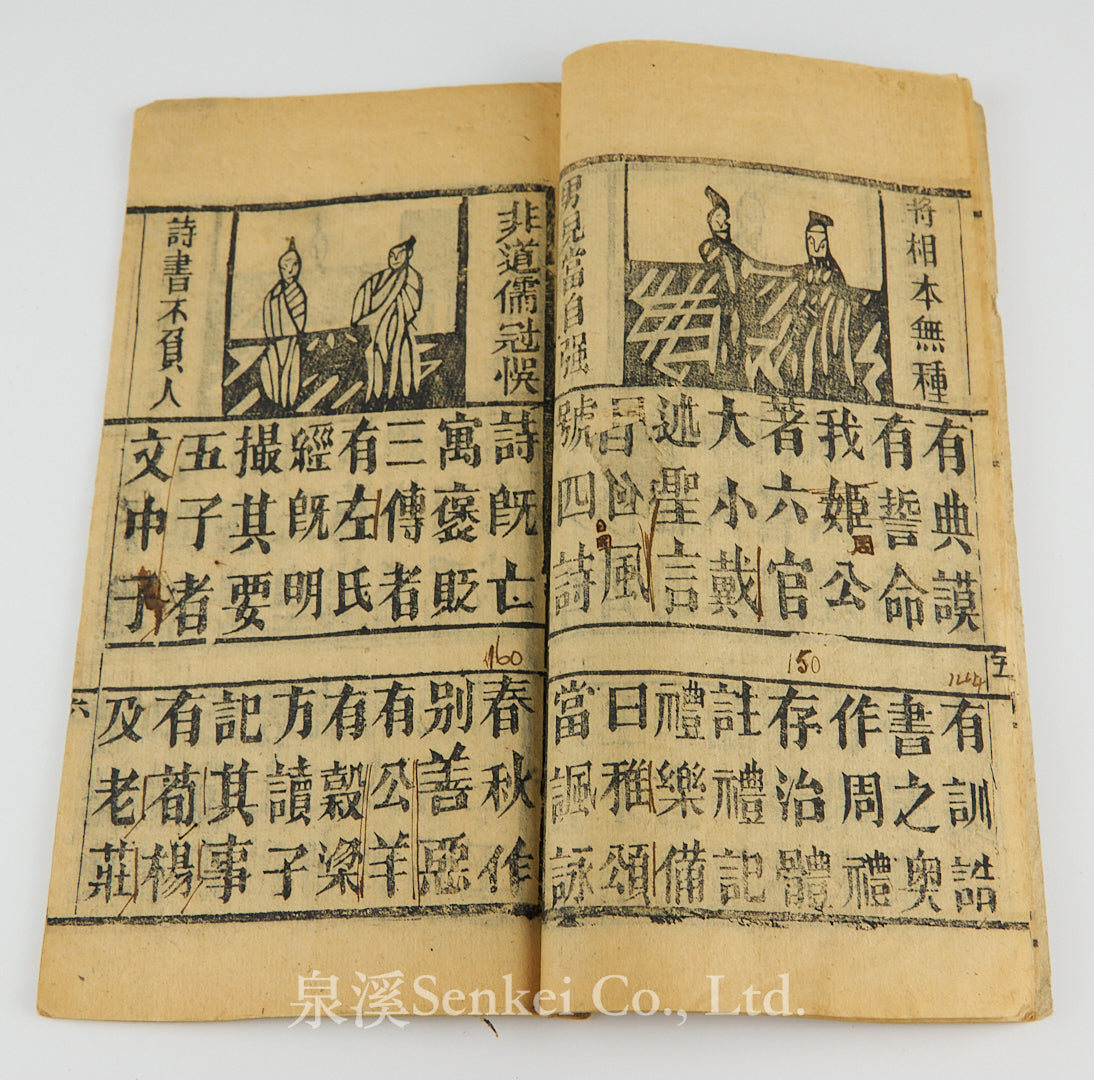 將相本無種
男兒當自强
有典謨
有誓命
我姬公
著六官
大小戴
述聖言
曰風
號四詩
周
五
150
有訓誥
書之奧
作周禮
存治體
註禮記
禮樂備
曰雅頌
當諷詠
非道儒冠悞
詩書不負人
詩既亡
寓褒貶
三傳者
有左氏
經既明
撮其要
五子者
文中子
160
春秋作
别善惡
有公羊
有穀梁
方讀子
記其事
有荀楊
及老莊
六
泉溪Senkei Co., Ltd.